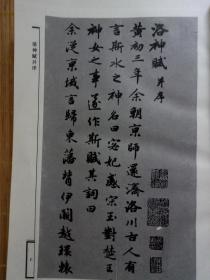 洛神賦 并序
黃初三年余朝京師還濟洛川古人有
言斯水之神名曰宓妃感宋玉對楚王
神女之事遂作斯賦其詞曰
余從京域言歸東藩背伊闕越轘轅
洛神賦并序